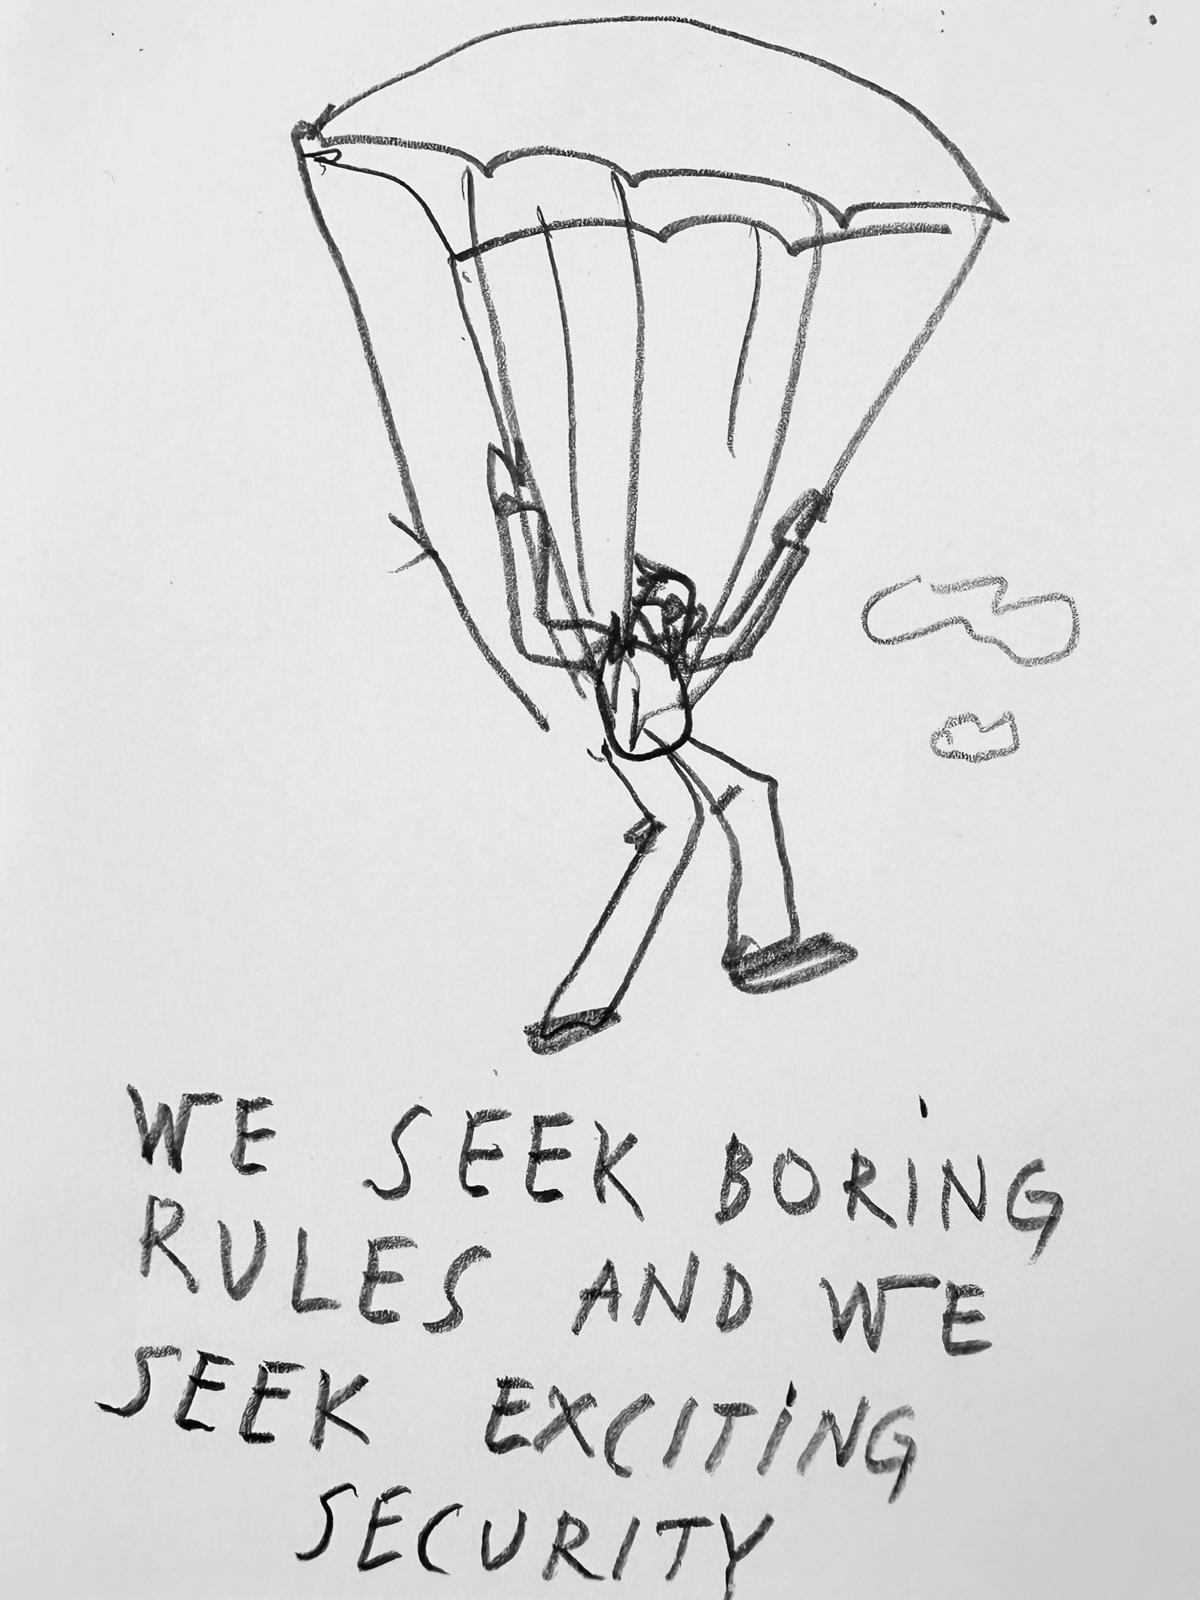 WE SEEK BORING
RULES AND WE
SEEK EXCITING
SECURITY